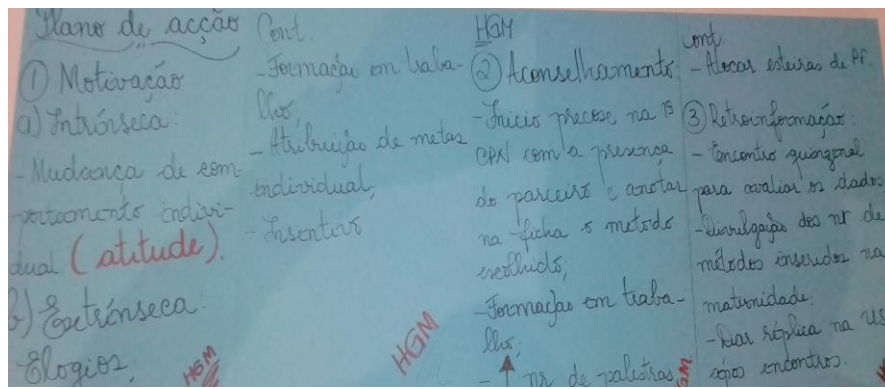 Plano de acção
① Motivação
a) Intrínseca:
- Mudança de com
portamento indivi-
dual (atitude).
b) Extrínseca:
Elogios,
HGM
Cont.
- Formação em traba-
lho,
- Atribuição de metas
individual,
- Insentivo
HGM
HGM
② Aconselhamento:
- Início precose na 1ª
CPN com a presença
do parceiro e anotar
na ficha o metodo
escolhido;
- Formação em traba-
lho;
- ↑ nr de palestras
HGM
cont.
- Alocar esteiras de PF.
③ Retroinformação:
- Encontro quinzenal
para avaliar os dados
- Divulgação dos nr de
métodos inseridos na
maternidade;
- Dar réplica na US
após encontros.